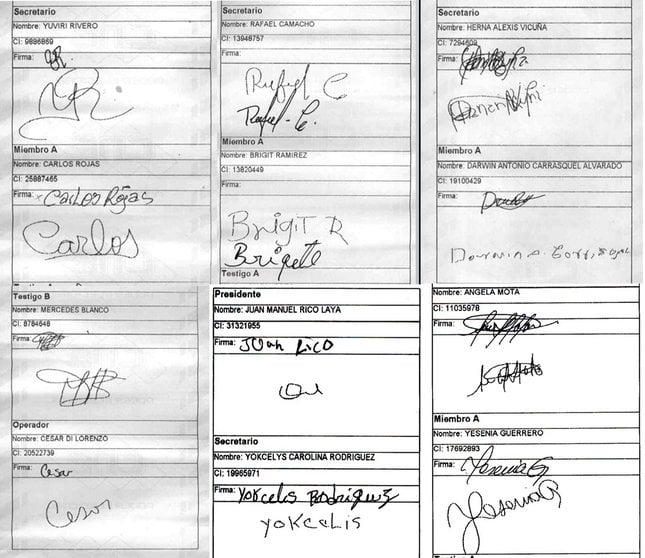 Secretario
Nombre: YUVIRI RIVERO
CI: 9886869
Firma:
Miembro A
Nombre: CARLOS ROJAS
CI: 25887465
Firma: Carlos Rojas
Carlos
Secretario
Nombre: RAFAEL CAMACHO
CI: 13948757
Firma:
Rafael C
Rafael C.
Miembro A
Nombre: BRIGIT RAMIREZ
CI: 13820449
Firma:
BrigiT R
Brigete
Testigo A
Secretario
Nombre: HERNA ALEXIS VICUÑA
CI: 7294609
Firma:
Miembro A
Nombre: DARWIN ANTONIO CARRASQUEL ALVARADO
CI: 19100429
Firma:
Testigo B
Nombre: MERCEDES BLANCO
CI: 8784648
Firma:
Operador
Nombre: CESAR DI LORENZO
CI: 20522739
Firma: Cesar
Cesar
Presidente
Nombre: JUAN MANUEL RICO LAYA
CI: 31321955
Firma: JUan Rico
Secretario
Nombre: YOKCELYS CAROLINA RODRIGUEZ
CI: 19965971
Firma: Yokcelis Rodriguez
YOKCELIS
Nombre: ANGELA MOTA
CI: 11035978
Firma:
Miembro A
Nombre: YESENIA GUERRERO
CI: 17692893
Firma: Yesenia G
Yesenia G